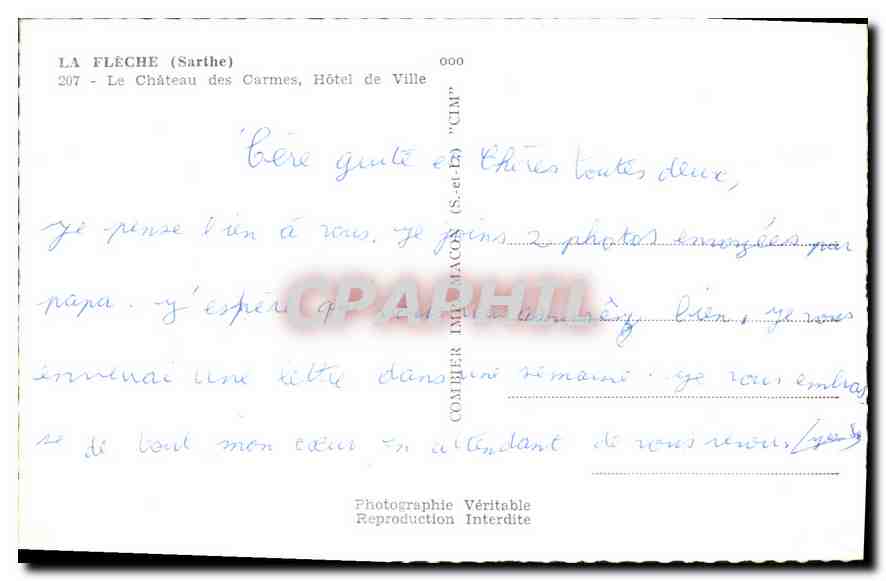 LA FLÈCHE (Sarthe)
207 - Le Château des Carmes, Hôtel de Ville
000
COMBIER IMP. MACON (S.-et-L.) "CIM"
guité et Chères toutes deux,
je pense bien à vous. Je joins 2 photos envoyées par
papa. J'espère bien, je vous
enverrai une lettre dans une semaine. Je vous embras
se de tout mon cœur en attendant de vous
CPAPHIL
Photographie Véritable
Reproduction Interdite